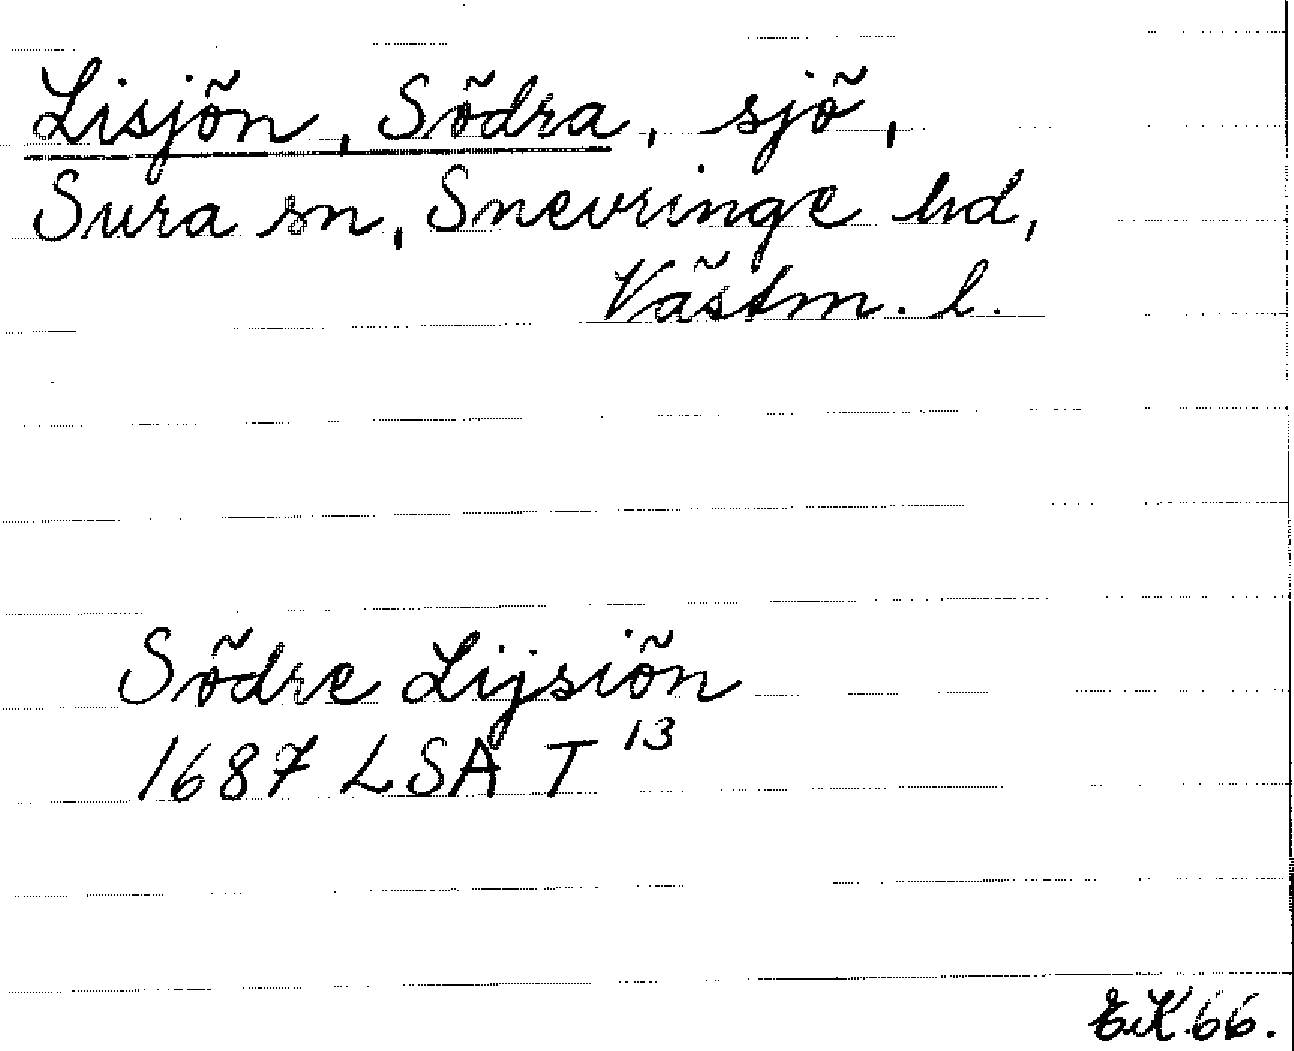 Lisjön, Södra, sjö,
Sura sn, Snevringe hd,
Västm. l.
Södre Lijsiön
1687 LSA T 13
EK 66.